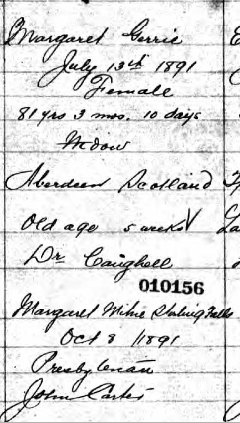 Margaret Gerrie
July 13th 1891
Female
81 yrs 3 mos. 10 days
Widow
Aberdeen Scotland
Old age 5 weeks
Dr Caughell
010156
Margaret Milne Stirling Falls
Oct 8 1891
Presbyterian
John Carter